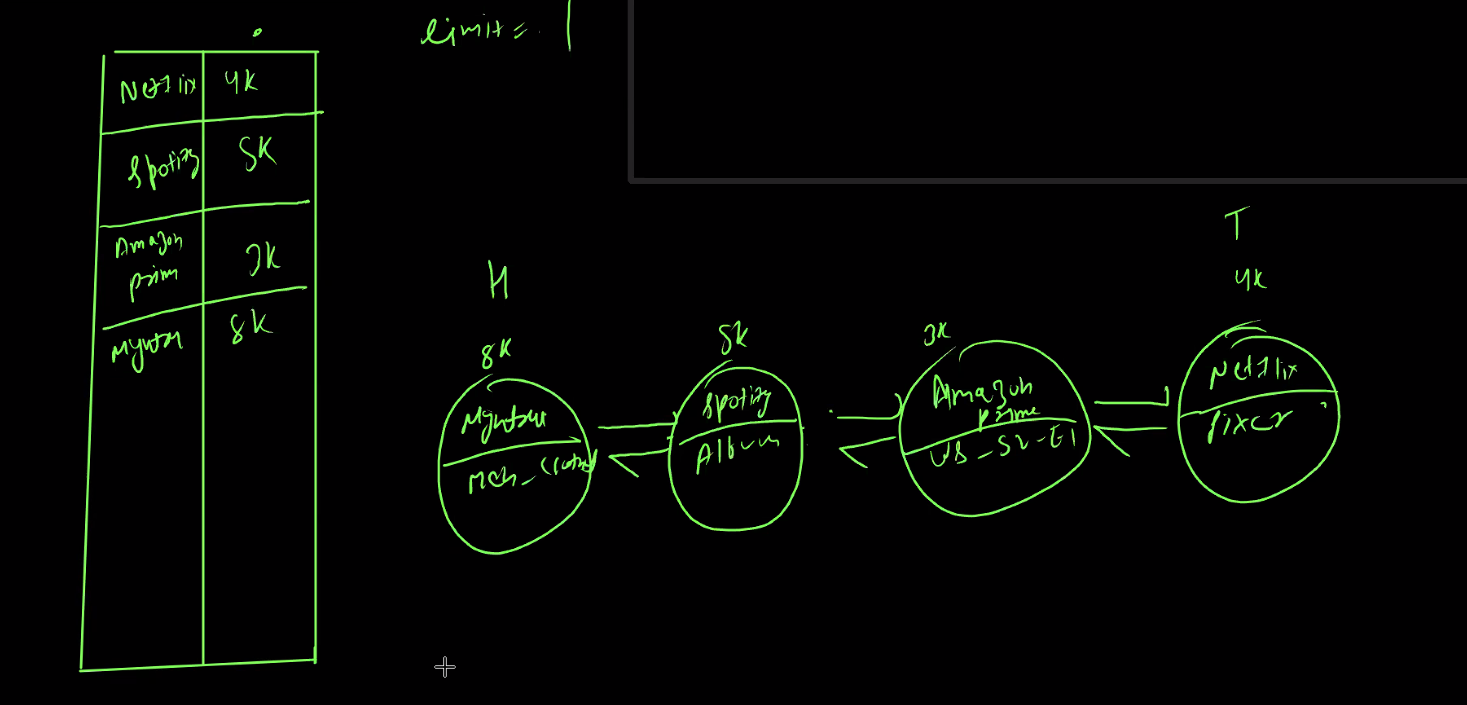 limit =
Netflix 4K
Spotify 5K
Amazon
prim
3K
Myntra 8K
H
8K
Myntra
5K
Spotify
Album
3K
Amazon
prime
T
4K
Netflix